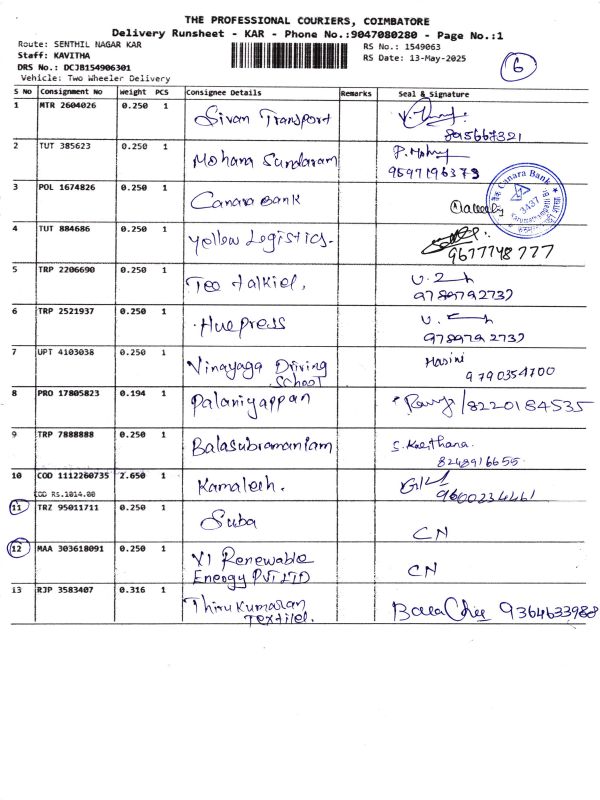 THE PROFESSIONAL COURIERS, COIMBATORE
Delivery Runsheet - KAR - Phone No.:9047080280 - Page No.:1
Route: SENTHIL NAGAR KAR
RS No.: 1549063
Staff: KAVITHA
RS Date: 13-May-2025
DRS No.: DCJB154906301
Vehicle: Two Wheeler Delivery
6
S No Consignment No Weight PCS Consignee Details Remarks Seal & Signature
1 MTR 2604026 0.250 1 Sivan Transport
895667321
2 TUT 385623 0.250 1 Mohana Sundaram
9597196379
3 POL 1674826 0.250 1 Canara Bank
Canara Bank
3437
4 TUT 884686 0.250 1 Yellow Logistics.
9677748777
5 TRP 2206690 0.250 1 Tee talkiel,
9789792739
6 TRP 2521937 0.250 1 Huepress
9789792739
7 UPT 4103038 0.250 1 Vinayaga Driving School Hasini
9790354700
8 PRO 17805823 0.194 1 Palaniyappan 8220184535
9 TRP 7888888 0.250 1 Balasubramaniam S. Keerthana.
8248916655
10 COD 1112260735 2.650 1 Kamalesh.
COD RS.1014.00
9600234461
11 TRZ 95011711 0.250 1 Suba CN
12 MAA 303618091 0.250 1 XI Renewable Energy Pvt LTD CN
13 RJP 3583407 0.316 1 Thirukumaran Textilel. 9364633988